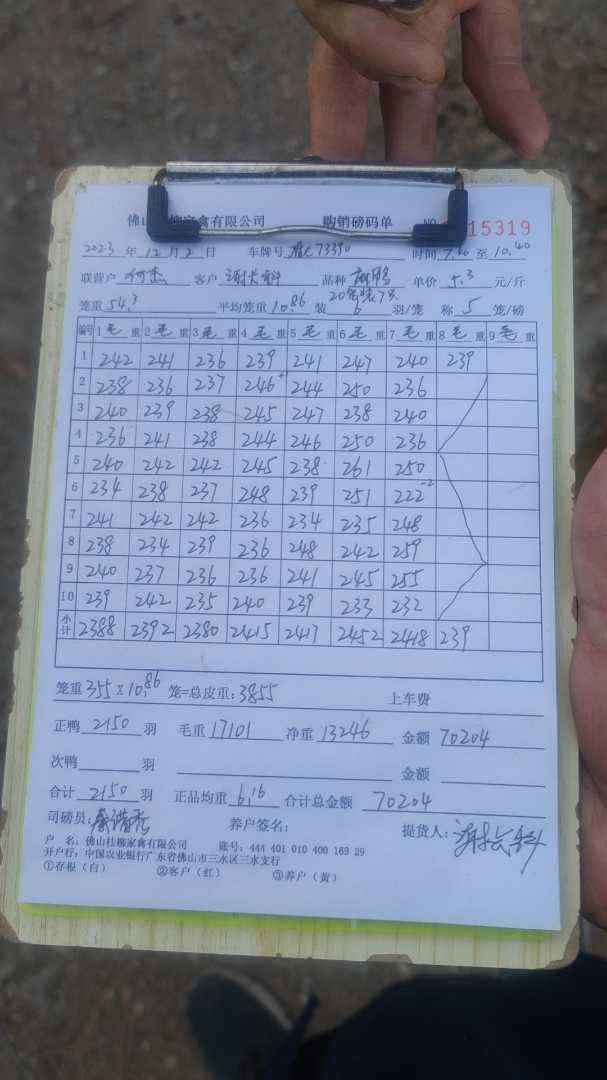 佛山桂柳家禽有限公司 购销磅码单 NO 15319
2023 年 12 月 2 日 车牌号 73390 时间 7.20 至 10.40
联营户 何杰 客户 品种 单价 5.3 元/斤
20笼装7只
笼重 54.3 平均笼重 10.86 装 6 羽/笼 称 5 笼/磅
编号 1毛重 2毛重 3毛重 4毛重 5毛重 6毛重 7毛重 8毛重 9毛重
1 242 241 236 239 241 247 240 239
2 238 236 237 246 244 250 236
3 240 239 238 245 247 238 240
4 236 241 238 244 246 250 236
5 240 242 242 245 238 261 250
6 234 238 237 248 239 251 222 -2
7 241 242 242 236 234 235 248
8 238 234 239 236 248 242 259
9 240 237 236 236 241 245 255
10 239 242 235 240 239 233 232
小计 2388 2392 2380 2415 2417 2452 2418 239
笼重 355 x 10.86 笼=总皮重: 3855 上车费
正鸭 2150 羽 毛重 17101 净重 13246 金额 70204
次鸭 羽 金额
合计 2150 羽 正品均重 6.16 合计总金额 70204
司磅员: 养户签名: 提货人:
户 名: 佛山桂柳家禽有限公司 账号: 444 401 010 400 169 29
开户行: 中国农业银行广东省佛山市三水区三水支行
①存根(白) ②客户(红) ③养户(黄)